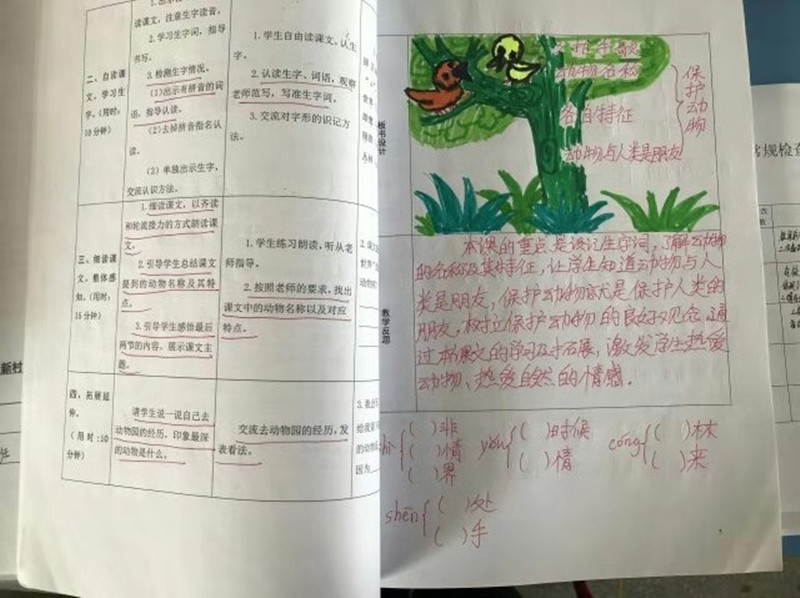 读课文，注意生字读音。
2.学习生字词，指导
书写。
3.检测生字情况。
(1)出示有拼音的词
语，指导认读。
(2)去掉拼音指名认
读。
(3)单独出示生字，
交流认识方法。
二、自读课
文，学习生
字。(用时：
10分钟)
1.学生自由读课文，认生
字。
2.认读生字、词语，观察
老师范写，写准生字词。
3.交流对字形的识记方
法。
三、细读课
文，整体感
知。(用时：
15分钟)
1.细读课文，以齐读
和轮流接力的方式朗读课
文。
2.引导学生总结课文
提到的动物名称及其特
点。
3.引导学生感悟最后
两节的内容，展示课文主
题。
1.学生练习朗读，听从老
师指导。
2.按照老师的要求，找出
课文中的动物名称以及对应
特点。
四、拓展延
伸。
(用时：10
分钟)
请学生说一说自己去
动物园的经历，印象最深
的动物是什么。
交流去动物园的经历，发
表看法。
板书设计
拍手歌
动物名称
各自特征
动物与人类是朋友
保护动物
教学反思
本课的重点是识记生字词，了解动物
的名称及其特征，让学生知道动物与人
类是朋友，保护动物就是保护人类的
朋友，树立保护动物的良好观念。通
过本课文的学习及拓展，激发学生热爱
动物、热爱自然的情感。
( )非
( )情
( )界
( )时候
( )情
cóng
( )林
( )来
shēn
( )处
( )手
常规检查